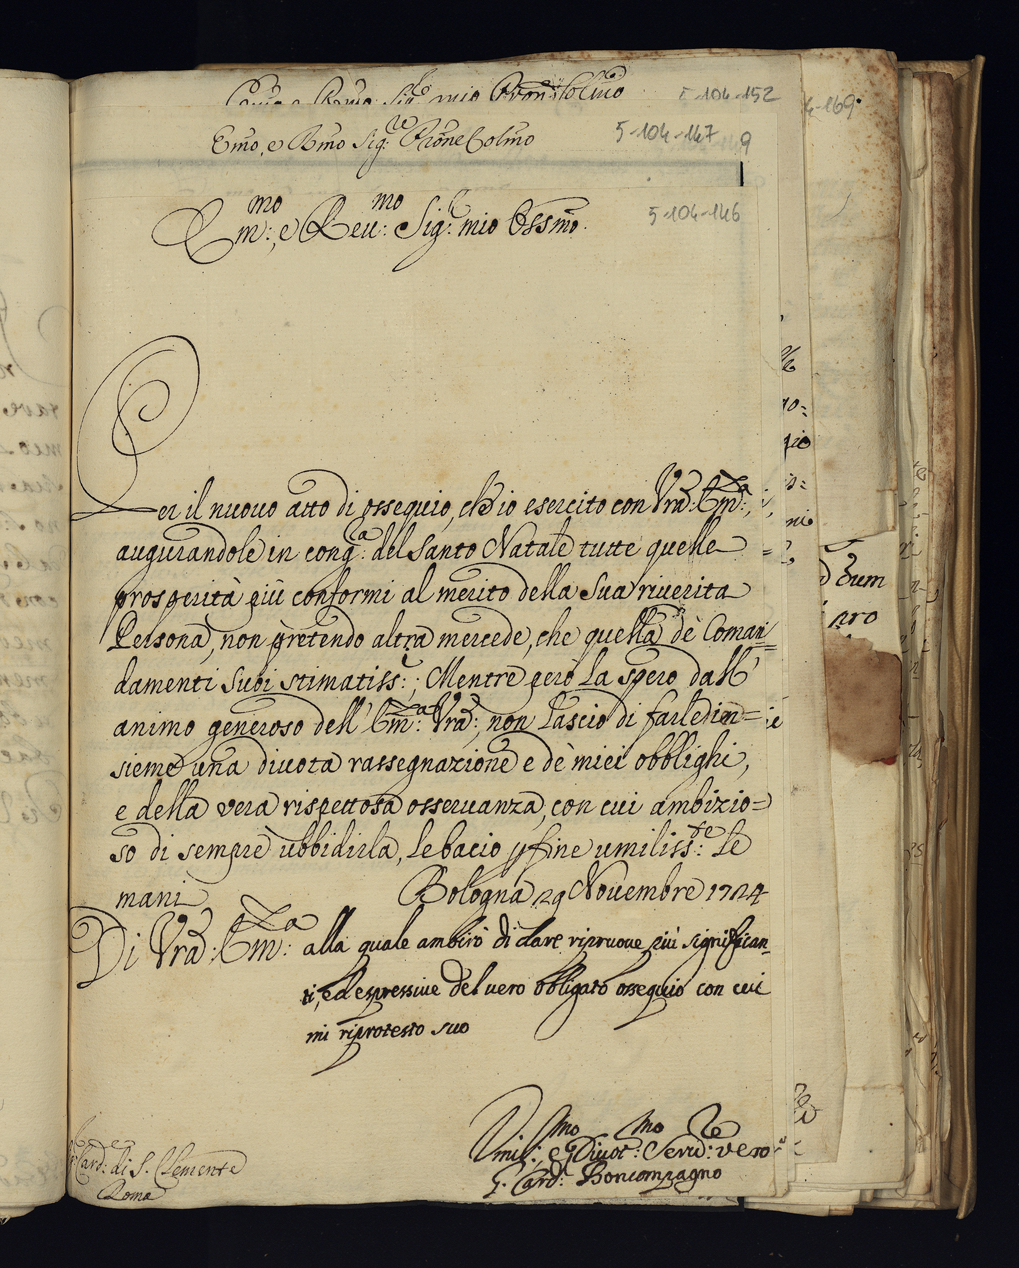 5-104-152
4-169.
Emo, e Rmo Sig:re Prone Colmo
5-104-147
9
Em:mo, e Reu:mo Sig:r mio Ossmo.
5-104-146
Per il nuovo atto di ossequio, ch'io esercito con Vra: Em:za,
augurandole in cong:a del Santo Natale tutte quelle
prosperità più conformi al merito della Sua riverita
Persona, non pretendo altra mercede, che quella de' Coman=
damenti suoi stimatiss:i; Mentre però la spero dall'
animo generoso dell' Em:za Vra:, non lascio di farle in=
sieme una divota rassegnazione e de' miei obblighi,
e della vera rispettosa osservanza, con cui ambizio=
so di sempre ubbidirla, le bacio p fine umiliss:te le
mani
Bologna 29 Novembre 1724
Di Vra: Em:za alla quale ambirò di dare ripruoue più significan
ti, ed espressiue del vero obbligato ossequio con cui
mi riprotesto suo
Umil:mo, e Diuot:mo Serid:re vero
G. Card: Boncompagno
Card: di S. Clemente
Roma